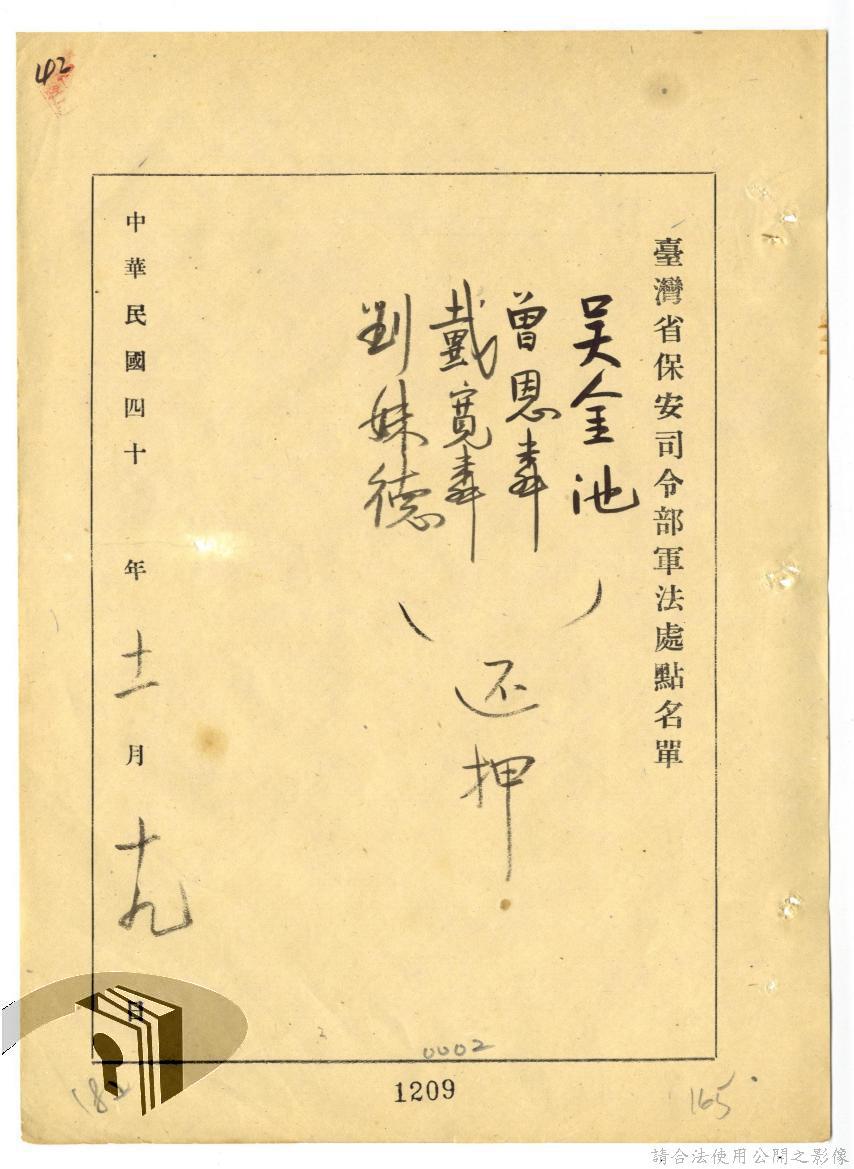 42
臺灣省保安司令部軍法處點名單
吴金池
曾恩彝
戴寬彝
劉妹德
还押
中華民國四十年十一月十九日
0002
1209
165
請合法使用公開之影像